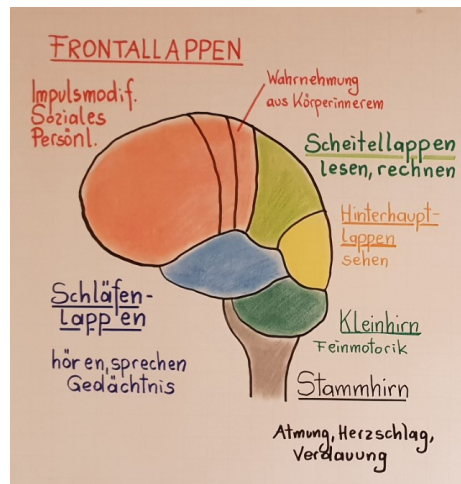 FRONTALLAPPEN
Impulsmodif.
Soziales
Persönl.
Wahrnehmung
aus Körperinnerem
Scheitellappen
lesen, rechnen
Hinterhaupt-
lappen
sehen
Schläfen-
lappen
hören, sprechen
Gedächtnis
Kleinhirn
Feinmotorik
Stammhirn
Atmung, Herzschlag,
Verdauung